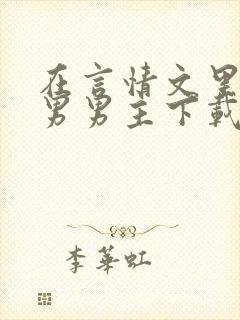 在言情文里
男男主下载
李華虹